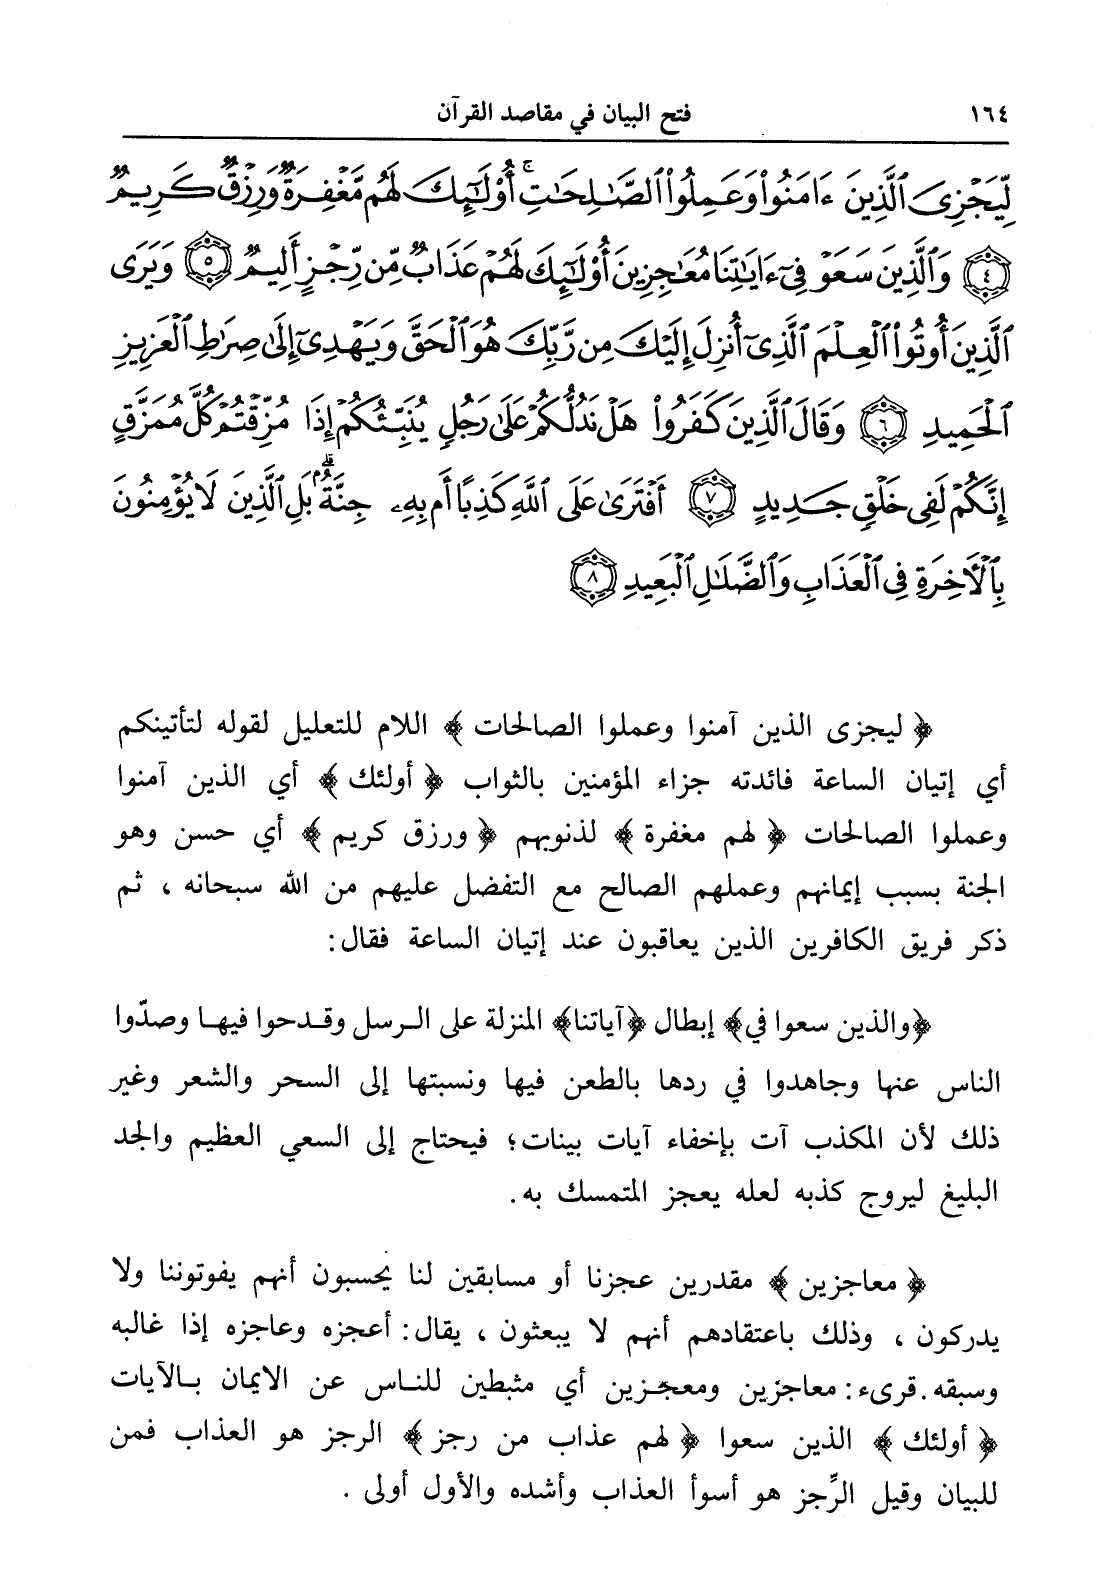 ١٦٤ فتح البيان في مقاصد القرآن
لِّيَجْزِيَ ٱلَّذِينَ ءَامَنُوا۟ وَعَمِلُوا۟ ٱلصَّـٰلِحَـٰتِ ۚ أُو۟لَـٰٓئِكَ لَهُم مَّغْفِرَةٌ وَرِزْقٌ كَرِيمٌ
﴿٤﴾ وَٱلَّذِينَ سَعَوْ فِىٓ ءَايَـٰتِنَا مُعَـٰجِزِينَ أُو۟لَـٰٓئِكَ لَهُمْ عَذَابٌ مِّن رِّجْزٍ أَلِيمٌ ﴿٥﴾ وَيَرَى
ٱلَّذِينَ أُوتُوا۟ ٱلْعِلْمَ ٱلَّذِىٓ أُنزِلَ إِلَيْكَ مِن رَّبِّكَ هُوَ ٱلْحَقَّ وَيَهْدِىٓ إِلَىٰ صِرَٰطِ ٱلْعَزِيزِ
ٱلْحَمِيدِ ﴿٦﴾ وَقَالَ ٱلَّذِينَ كَفَرُوا۟ هَلْ نَدُلُّكُمْ عَلَىٰ رَجُلٍ يُنَبِّئُكُمْ إِذَا مُزِّقْتُمْ كُلَّ مُمَزَّقٍ
إِنَّكُمْ لَفِى خَلْقٍ جَدِيدٍ ﴿٧﴾ أَفْتَرَىٰ عَلَى ٱللَّهِ كَذِبًا أَم بِهِۦ جِنَّةٌۢ ۗ بَلِ ٱلَّذِينَ لَا يُؤْمِنُونَ
بِٱلْـَٔاخِرَةِ فِى ٱلْعَذَابِ وَٱلضَّلَـٰلِ ٱلْبَعِيدِ ﴿٨﴾
﴿ ليجزى الذين آمنوا وعملوا الصالحات ﴾ اللام للتعليل لقوله لتأتينكم
أي إتيان الساعة فائدته جزاء المؤمنين بالثواب ﴿ أولئك ﴾ أي الذين آمنوا
وعملوا الصالحات ﴿ لهم مغفرة ﴾ لذنوبهم ﴿ ورزق كريم ﴾ أي حسن وهو
الجنة بسبب إيمانهم وعملهم الصالح مع التفضل عليهم من الله سبحانه ، ثم
ذكر فريق الكافرين الذين يعاقبون عند إتيان الساعة فقال:
﴿والذين سعوا في﴾ إبطال ﴿آياتنا﴾ المنزلة على الرسل وقدحوا فيها وصدّوا
الناس عنها وجاهدوا في ردها بالطعن فيها ونسبتها إلى السحر والشعر وغير
ذلك لأن المكذب آت بإخفاء آيات بينات؛ فيحتاج إلى السعي العظيم والجد
البليغ ليروج كذبه لعله يعجز المتمسك به.
﴿ معاجزين ﴾ مقدرين عجزنا أو مسابقين لنا يحسبون أنهم يفوتوننا ولا
يدركون ، وذلك باعتقادهم أنهم لا يبعثون ، يقال: أعجزه وعاجزه إذا غالبه
وسبقه. قرىء: معاجزين ومعجزين أي مثبطين للناس عن الايمان بالآيات
﴿ أولئك ﴾ الذين سعوا ﴿ لهم عذاب من رجز ﴾ الرجز هو العذاب فمن
للبيان وقيل الرِّجز هو أسوأ العذاب وأشده والأول أولى .